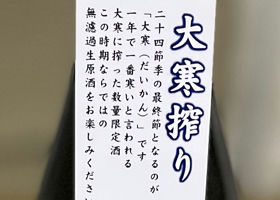 大寒搾り
二十四節季の最終節となるのが
「大寒（だいかん）」です
一年で一番寒いと言われる
大寒に搾った数量限定酒
この時期ならではの
無濾過生原酒をお楽しみくださ